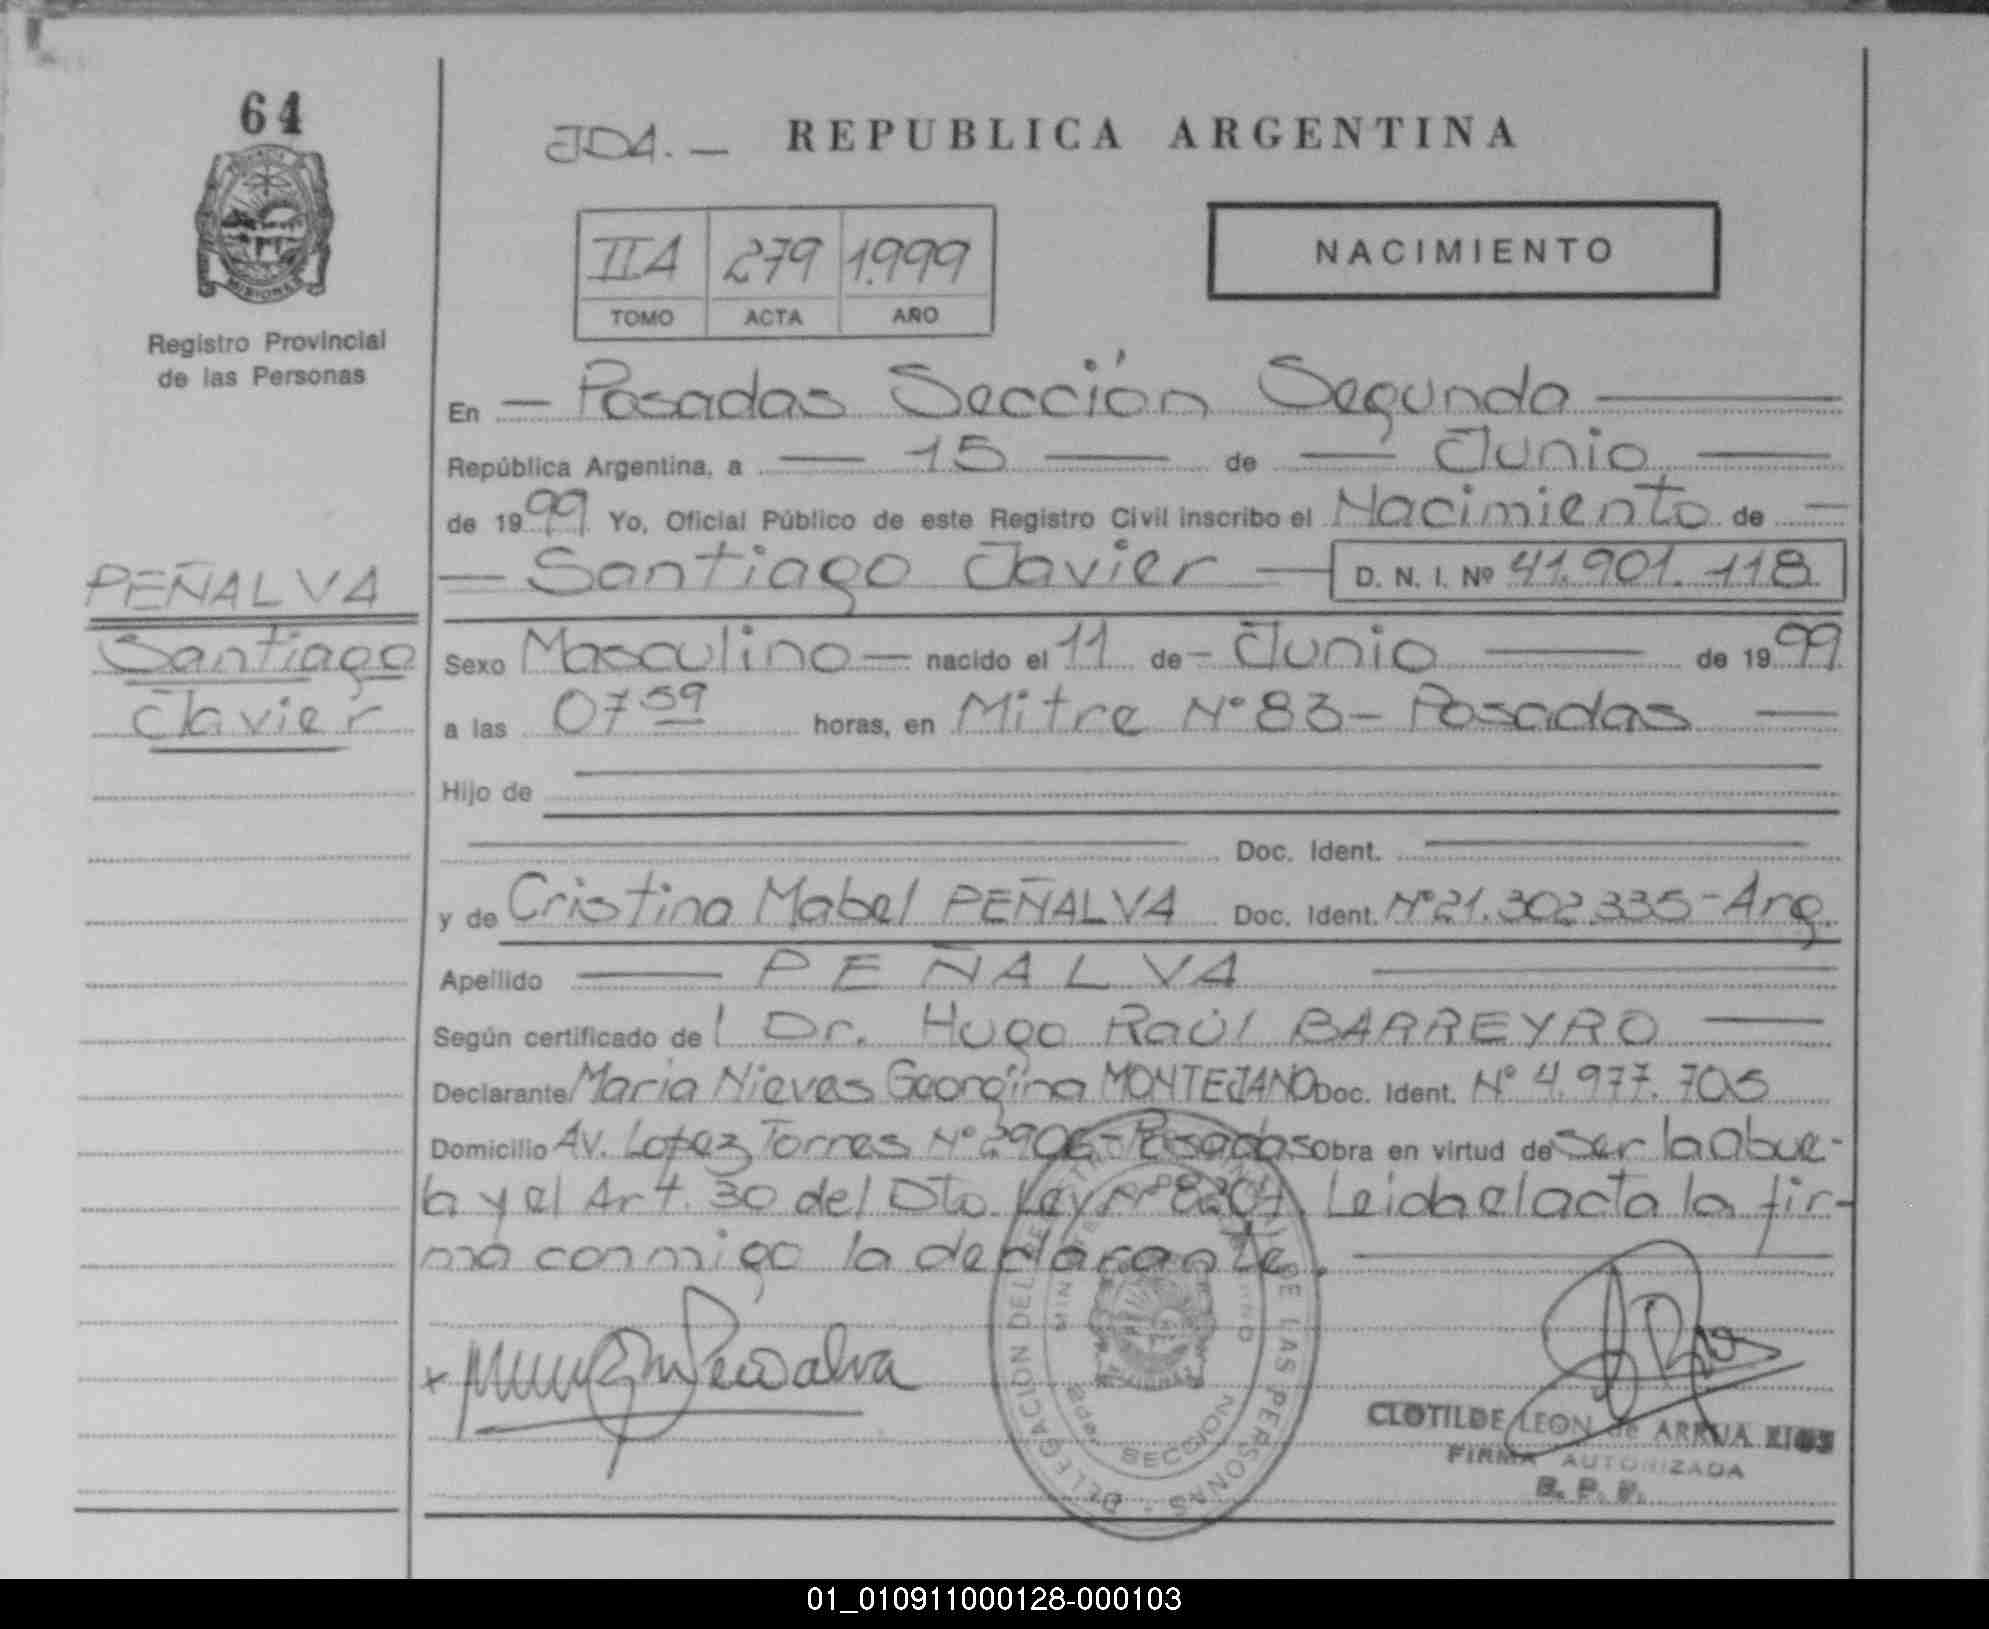 64
JDA. —
REPUBLICA ARGENTINA
MISIONES
Registro Provincial
de las Personas
IIA 279 1.999
TOMO ACTA AÑO
NACIMIENTO
En — Posadas Sección Segunda —
República Argentina, a — 15 — de — Junio —
de 1999 Yo, Oficial Público de este Registro Civil inscribo el Nacimiento de —
— Santiago Javier — D. N. I. Nº 41.901.118
PEÑALVA
Santiago
Javier
Sexo Masculino — nacido el 11 de - Junio — de 1999
a las 07 59 horas, en Mitre Nº 83 - Posadas —
Hijo de
Doc. Ident.
y de Cristina Mabel PEÑALVA Doc. Ident. Nº 21.302.335 - Arg.
Apellido — PEÑALVA —
Según certificado del Dr. Hugo Raúl BARREYRO —
Declarante Maria Nieves Georgina MONTEJANO Doc. Ident. Nº 4.977.705
Domicilio Av. Lopez Torres Nº 2906 - Posadas Obra en virtud de ser la abue-
la y el Art. 30 del Dto. Ley Nº 8204. Leida el acta la fir-
ma conmigo la declarante.
DELEGACION DEL REGISTRO PROVINCIAL DE LAS PERSONAS
SECCION
CLOTILDE LEON de ARRUA RIOS
FIRMA AUTORIZADA
R. P. P.
01_010911000128-000103